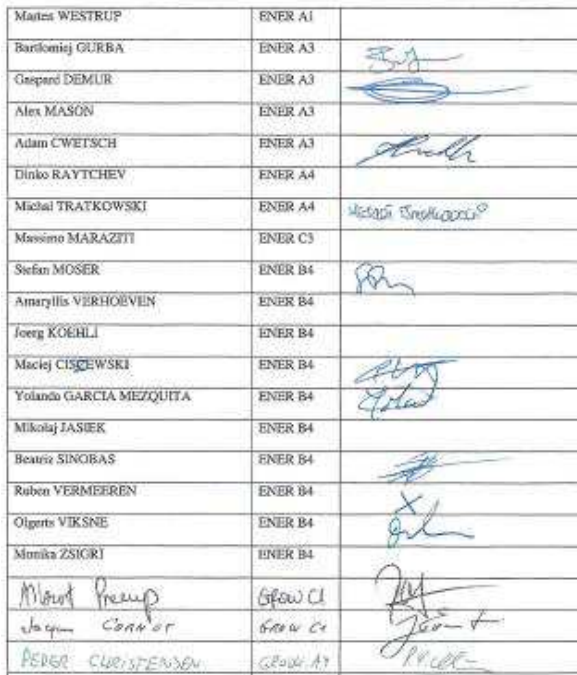 Martes WESTRUP ENER A1
Bartłomiej GURBA ENER A3
Gaspard DEMUR ENER A3
Alex MASON ENER A3
Adam CWETSCH ENER A3
Dinko RAYTCHEV ENER A4
Michal TRATKOWSKI ENER A4
Massimo MARAZITI ENER C3
Stefan MOSER ENER B4
Amaryllis VERHOEVEN ENER B4
Joerg KOEHLI ENER B4
Maciej CISZEWSKI ENER B4
Yolanda GARCIA MEZQUITA ENER B4
Mikołaj JASIEK ENER B4
Beatriz SINOBAS ENER B4
Ruben VERMEEREN ENER B4 X
Olgerts VIKSNE ENER B4
Monika ZSIGRI ENER B4
GROW C1
GROW C1
PEDER CHRISTENSEN GROW A4